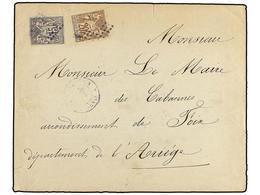 Monsieur
Monsieur Le Maire
des Cabannes
arrondissement de Foix
département de l'Ariège